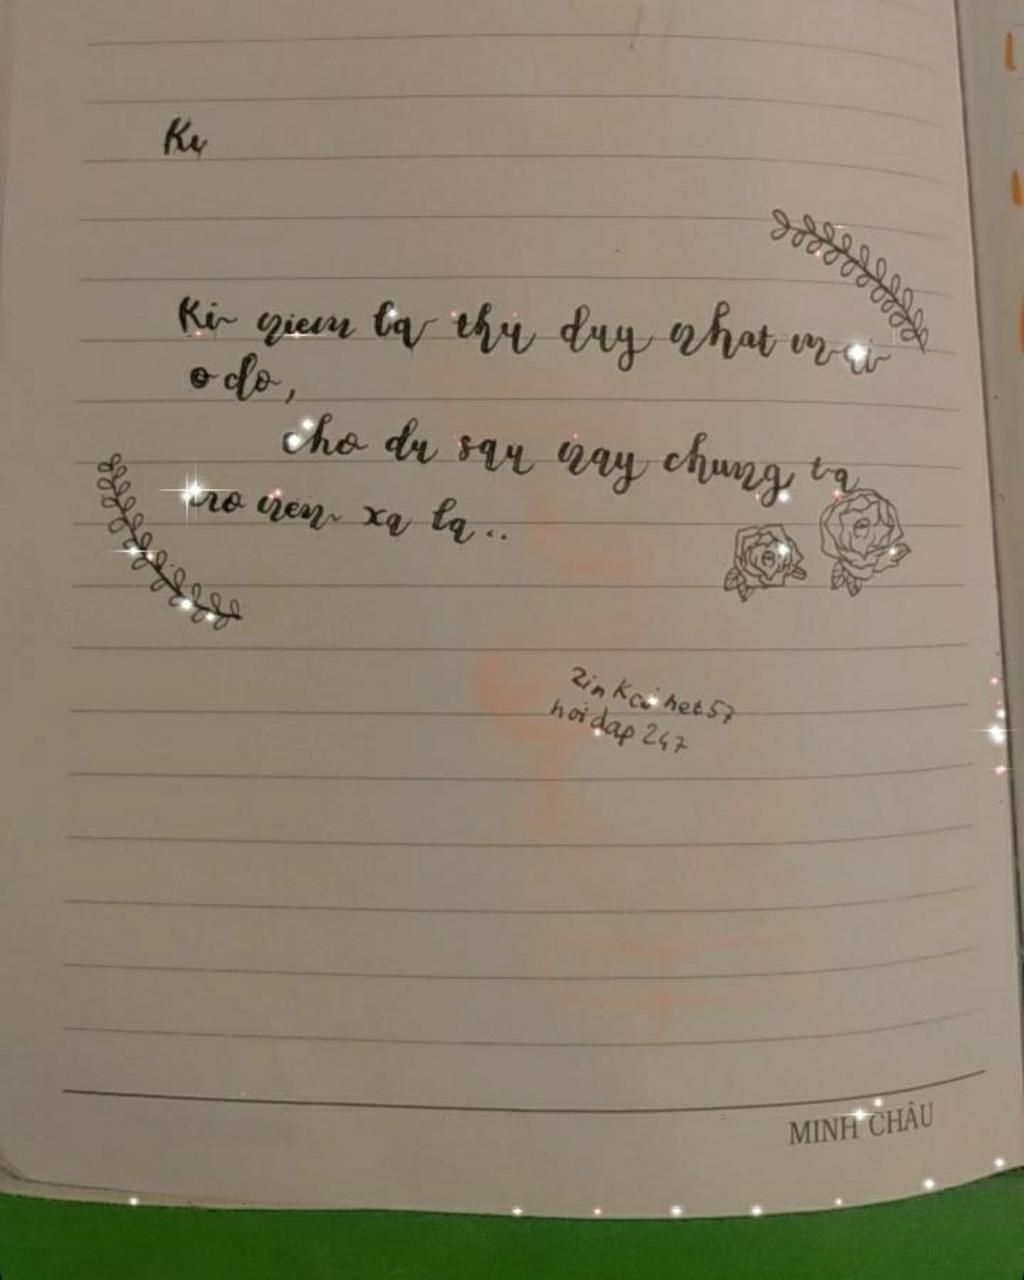 Ku
Ki niem la thu duy nhat mai
o do,
cho du sau nay chung ta
tro nen xa la..
zinkcuhet57
hoidap 247
MINH CHÂU